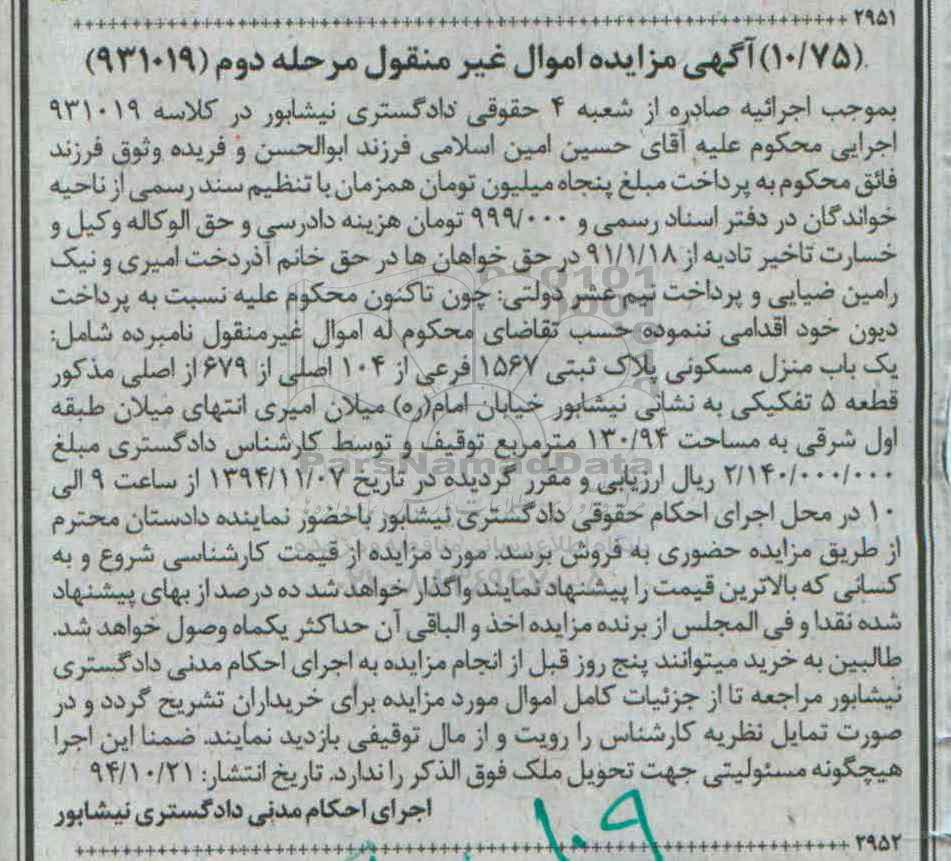 ۲۹۵۱
(۱۰/۷۵) آگهی مزایده اموال غیر منقول مرحله دوم (۹۳۱۰۱۹)
بموجب اجرائیه صادره از شعبه ۴ حقوقی دادگستری نیشابور در کلاسه ۹۳۱۰۱۹
اجرایی محکوم علیه آقای حسین امین اسلامی فرزند ابوالحسن و فریده وثوق فرزند
فائق محکوم به پرداخت مبلغ پنجاه میلیون تومان همزمان با تنظیم سند رسمی از ناحیه
خواندگان در دفتر اسناد رسمی و ۹۹۹/۰۰۰ تومان هزینه دادرسی و حق الوکاله وکیل و
خسارت تاخیر تادیه از ۹۱/۱/۱۸ در حق خواهان ها در حق خانم آذردخت امیری و نیک
رامین ضیایی و پرداخت نیم عشر دولتی: چون تاکنون محکوم علیه نسبت به پرداخت
دیون خود اقدامی ننموده حسب تقاضای محکوم له اموال غیرمنقول نامبرده شامل:
یک باب منزل مسکونی پلاک ثبتی ۱۵۶۷ فرعی از ۱۰۴ اصلی از ۶۷۹ از اصلی مذکور
قطعه ۵ تفکیکی به نشانی نیشابور خیابان امام(ره) میلان امیری انتهای میلان طبقه
اول شرقی به مساحت ۱۳۰/۹۴ مترمربع توقیف و توسط کارشناس دادگستری مبلغ
۲/۱۴۰/۰۰۰/۰۰۰ ریال ارزیابی و مقرر گردیده در تاریخ ۱۳۹۴/۱۱/۰۷ از ساعت ۹ الی
۱۰ در محل اجرای احکام حقوقی دادگستری نیشابور باحضور نماینده دادستان محترم
از طریق مزایده حضوری به فروش برسد. مورد مزایده از قیمت کارشناسی شروع و به
کسانی که بالاترین قیمت را پیشنهاد نمایند واگذار خواهد شد ده درصد از بهای پیشنهاد
شده نقدا و فی المجلس از برنده مزایده اخذ و الباقی آن حداکثر یکماه وصول خواهد شد.
طالبین به خرید میتوانند پنج روز قبل از انجام مزایده به اجرای احکام مدنی دادگستری
نیشابور مراجعه تا از جزئیات کامل اموال مورد مزایده برای خریداران تشریح گردد و در
صورت تمایل نظریه کارشناس را رویت و از مال توقیفی بازدید نمایند. ضمنا این اجرا
هیچگونه مسئولیتی جهت تحویل ملک فوق الذکر را ندارد. تاریخ انتشار: ۹۴/۱۰/۲۱
اجرای احکام مدنی دادگستری نیشابور
۲۹۵۲
ParsNamadData